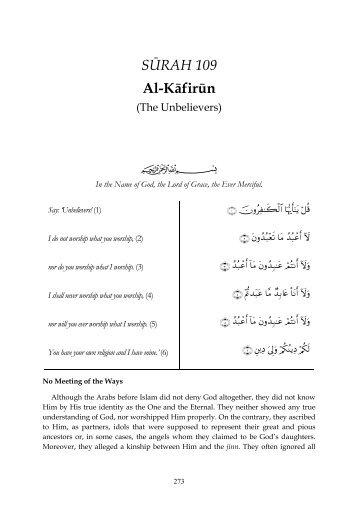 SŪRAH 109
Al-Kāfirūn
(The Unbelievers)
In the Name of God, the Lord of Grace, the Ever Merciful.
Say: ‘Unbelievers! (1)
قُلْ يَـٰٓأَيُّهَا ٱلْكَـٰفِرُونَ
I do not worship what you worship, (2)
لَآ أَعْبُدُ مَا تَعْبُدُونَ
nor do you worship what I worship. (3)
وَلَآ أَنتُمْ عَـٰبِدُونَ مَآ أَعْبُدُ
I shall never worship what you worship, (4)
وَلَآ أَنَا۠ عَابِدٌ مَّا عَبَدتُّمْ
nor will you ever worship what I worship. (5)
وَلَآ أَنتُمْ عَـٰبِدُونَ مَآ أَعْبُدُ
You have your own religion and I have mine.’ (6)
لَكُمْ دِينُكُمْ وَلِىَ دِينِ
No Meeting of the Ways
Although the Arabs before Islam did not deny God altogether, they did not know
Him by His true identity as the One and the Eternal. They neither showed any true
understanding of God, nor worshipped Him properly. On the contrary, they ascribed
to Him, as partners, idols that were supposed to represent their great and pious
ancestors or, in some cases, the angels whom they claimed to be God’s daughters.
Moreover, they alleged a kinship between Him and the jinn. They often ignored all
273